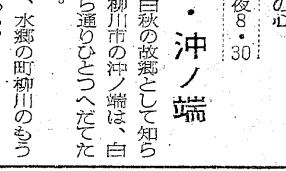 の心
夜8・30
・沖ノ端
白秋の故郷として知ら
柳川市の沖ノ端は、白
ら通りひとつへだてた
。
、水郷の町柳川のもう